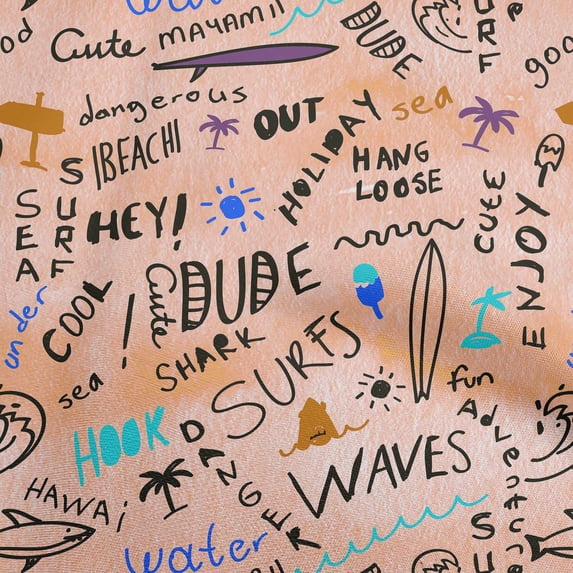 Cute
MAYAMII
DUDE
SURF
good
dangerous
sea
OUT
HOLIDAY
BEACH!
HANG
LOOSE
CUTE
ENJOY
SEA
SURF
HEY!
DUDE
Cute
under
COOL
!
sea
SHARK
SURFS
fun
HOOK
DANGER
WAVES
Adventure
HAWAi
water